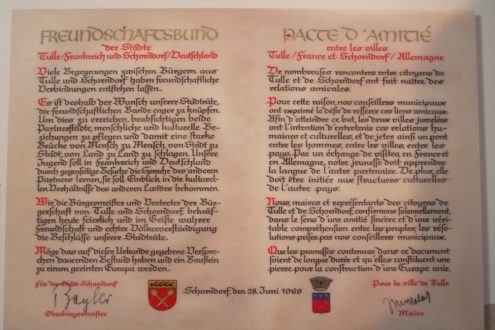 FREUNDSCHAFTSBUND
der Städte
Tulle/Frankreich und Schorndorf/Deutschland
Viele Begegnungen zwischen Bürgern aus
Tulle und Schorndorf haben freundschaftliche
Verbindungen entstehen lassen.
Es ist deshalb der Wunsch unsere Stadträte,
die freundschaftlichen Bande enger zu knüpfen.
Um dies zu erreichen, beabsichtigen beide
Partnerstädte, menschliche und kulturelle Be-
ziehungen zu pflegen und damit eine starke
Brücke von Mensch zu Mensch, von Stadt zu
Stadt, von Land zu Land zu schlagen. Unsere
Jugend soll in Frankreich und Deutschland
durch gegenseitige Besuche die Sprache des anderen
Partners lernen, sie soll Einblick in die kulturel-
len Verhältnisse des anderen Landes bekommen.
Wir, die Bürgermeister und Vertreter der Bürger-
schaft von Tulle und Schorndorf, bekräf-
tigen heute feierlich und im Geiste wahrer
Freundschaft und echter Völkerverständigung
die Beschlüsse unsere Stadträte.
Möge das auf dieser Urkunde gegebene Verspre-
chen dauernden Bestand haben und ein Baustein
zu einem geeinten Europa werden.
Für die Stadt Schorndorf
Oberbürgermeister
PACTE D'AMITIÉ
entre les villes
Tulle/France et Schorndorf/Allemagne
De nombreuses rencontres entre citoyens de
Tulle et de Schorndorf ont fait naître des
relations amicales.
Pour cette raison, nos conseillers municipaux
ont exprimé le désir de resserrer ces liens amicaux.
Afin d'atteindre ce but, les deux villes jumelées
ont l'intention d'entretenir ces relations hu-
maines et culturelles, et de jeter ainsi un pont
entre les hommes, entre les villes, entre les
pays. Par un échange de visites, en France et
en Allemagne, notre jeunesse doit apprendre
la langue de l'autre partenaire. De plus, elle
doit être initiée aux structures culturelles
de l'autre pays.
Nous, maires et représentants des citoyens de
Tulle et de Schorndorf, confirmons solennellement,
dans le sens d'une amitié sincère et d'une véri-
table compréhension entre les peuples, les réso-
lutions prises par nos conseillers municipaux.
Que les promesses contenues dans ce document
soient de longue durée et qu'elles constituent une
pierre pour la construction d'une Europe unie.
Pour la ville de Tulle
Maire
Schorndorf, den 28. Juni 1969